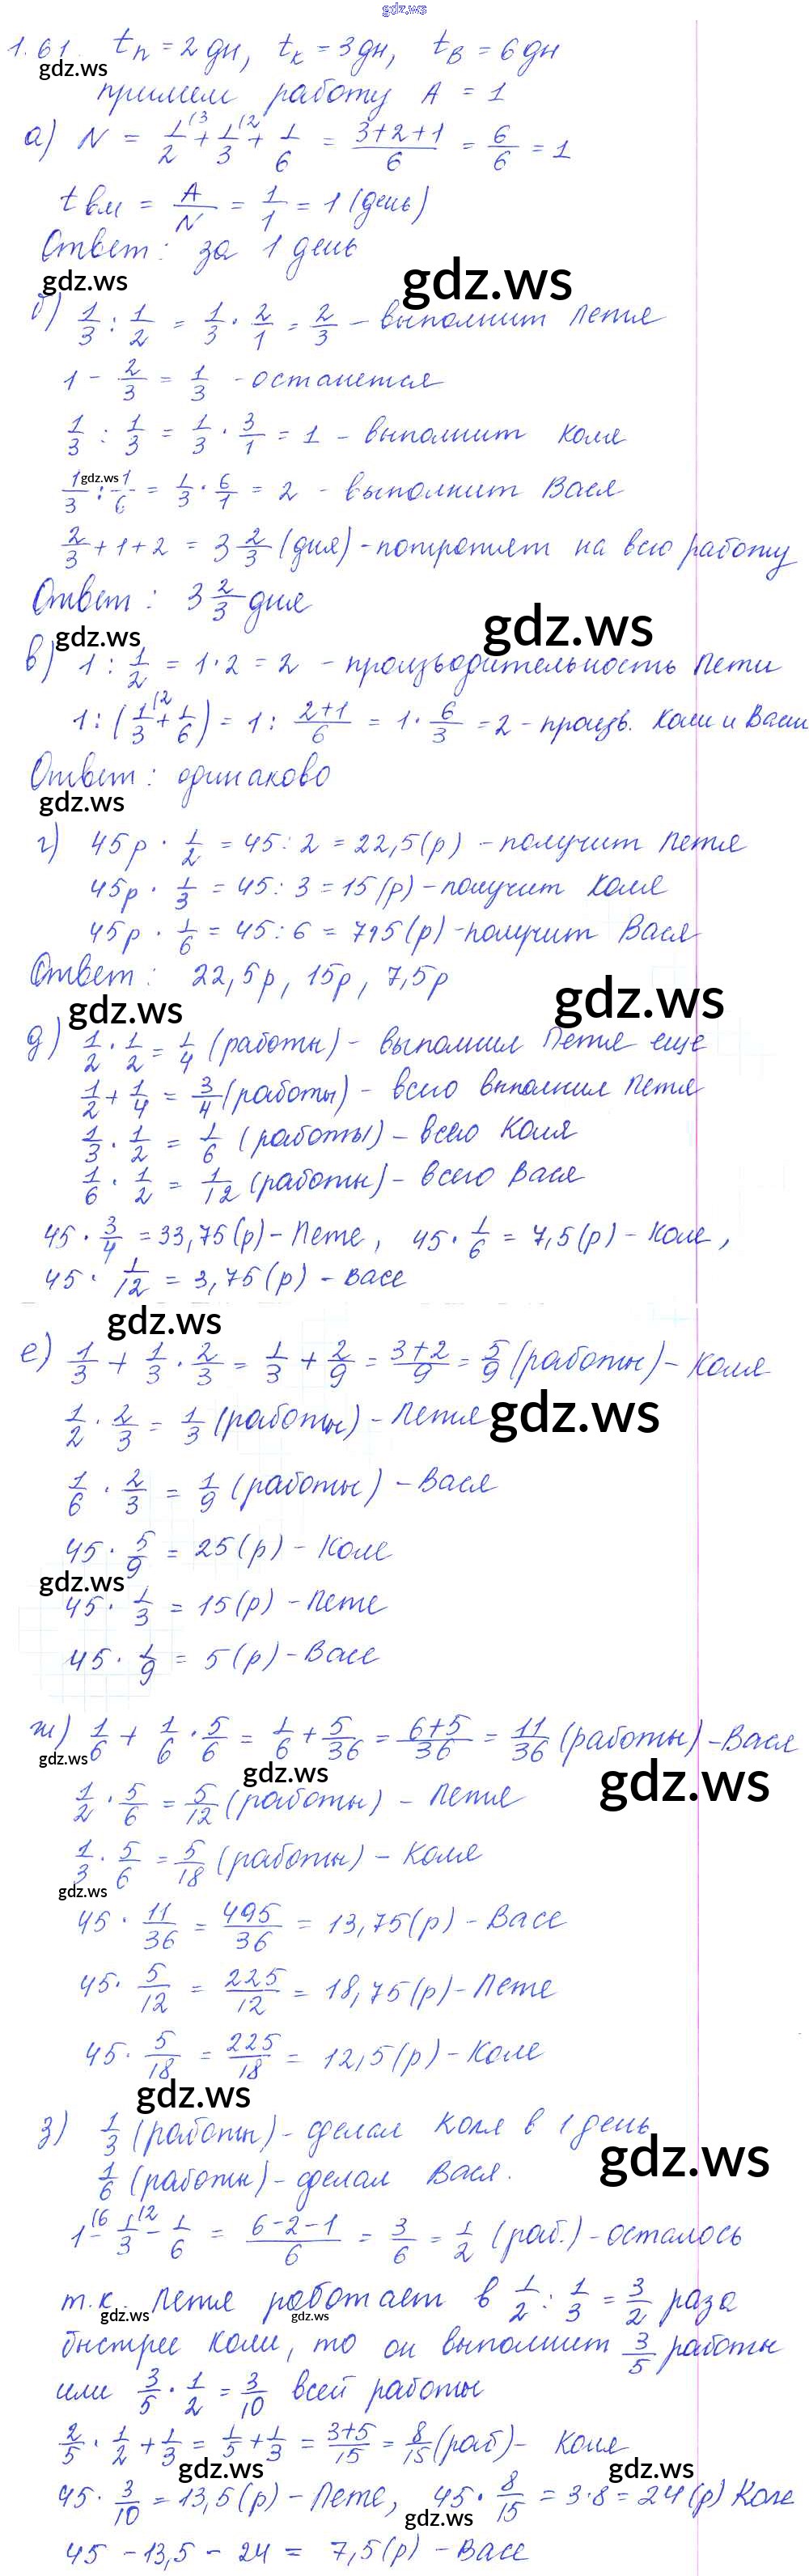 gdz.ws
1.61. tп = 2 дн, tк = 3 дн, tв = 6 дн
gdz.ws
примем работу А = 1
а) N = 1/2(3 + 1/3(2 + 1/6 = (3+2+1)/6 = 6/6 = 1
tвм = A/N = 1/1 = 1 (день)
Ответ: за 1 день
gdz.ws gdz.ws
б) 1/3 : 1/2 = 1/3 · 2/1 = 2/3 – выполнит Петя
1 - 2/3 = 1/3 - останется
1/3 : 1/3 = 1/3 · 3/1 = 1 – выполнит Коля
1/3 gdz.ws : 1/6 = 1/3 · 6/1 = 2 - выполнит Вася
2/3 + 1 + 2 = 3 2/3 (дня) - потратят на всю работу
Ответ: 3 2/3 дня
gdz.ws gdz.ws
в) 1 : 1/2 = 1·2 = 2 - производительность Пети
1 : (1/3(2 + 1/6) = 1 : (2+1)/6 = 1 · 6/3 = 2 - произв. Коли и Васи
Ответ: одинаково
gdz.ws
г) 45р · 1/2 = 45 : 2 = 22,5(р) - получит Петя
45р · 1/3 = 45 : 3 = 15(р) – получит Коля
45р · 1/6 = 45 : 6 = 7,5(р) - получит Вася
Ответ: 22,5р, 15р, 7,5р
gdz.ws gdz.ws
д) 1/2 · 1/2 = 1/4 (работы) - выполнил Петя еще
1/2 + 1/4 = 3/4 (работы) - всего выполнил Петя
1/3 · 1/2 = 1/6 (работы) – всего Коля
1/6 · 1/2 = 1/12 (работы) - всего Вася
45 · 3/4 = 33,75(р) - Пете, 45 · 1/6 = 7,5(р) - Коле,
45 · 1/12 = 3,75(р) - Васе
gdz.ws
е) 1/3 + 1/3 · 2/3 = 1/3 + 2/9 = (3+2)/9 = 5/9 (работы) - Коля
1/2 · 2/3 = 1/3 (работы) - Петя gdz.ws
1/6 · 2/3 = 1/9 (работы) - Вася
45 · 5/9 = 25(р) - Коле
gdz.ws
45 · 1/3 = 15(р) - Пете
45 · 1/9 = 5(р) - Васе
ж) 1/6 + 1/6 · 5/6 = 1/6 + 5/36 = (6+5)/36 = 11/36 (работы) - Вася
gdz.ws gdz.ws gdz.ws
1/2 · 5/6 = 5/12 (работы) - Петя
1/3 · 5/6 = 5/18 (работы) - Коля
gdz.ws
45 · 11/36 = 495/36 = 13,75(р) - Васе
45 · 5/12 = 225/12 = 18,75(р) - Пете
45 · 5/18 = 225/18 = 12,5(р) - Коле
gdz.ws
з) 1/3 (работы) - сделал Коля в 1 день
gdz.ws
1/6 (работы) - сделал Вася.
1(6 - 1/3(2 - 1/6 = (6-2-1)/6 = 3/6 = 1/2 (раб.) - осталось
т.к. Петя работает в 1/2 : 1/3 = 3/2 раза
gdz.ws gdz.ws
быстрее Коли, то он выполнит 3/5 работы
или 3/5 · 1/2 = 3/10 всей работы
2/5 · 1/2 + 1/3 = 1/5 + 1/3 = (3+5)/15 = 8/15 (раб) - Коля
gdz.ws gdz.ws
45 · 3/10 = 13,5(р) - Пете, 45 · 8/15 = 3·8 = 24(р) Коле
gdz.ws
45 - 13,5 - 24 = 7,5(р) - Васе